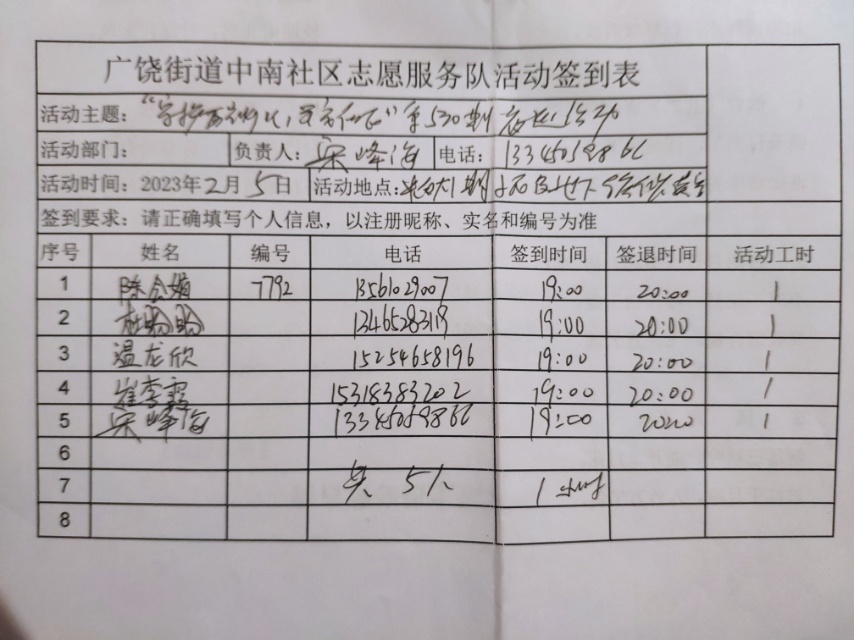 广饶街道中南社区志愿服务队活动签到表
活动主题： 第530期
活动部门： 负责人：宋峰海 电话：13345059866
活动时间：2023年2月5日 活动地点：
签到要求：请正确填写个人信息，以注册昵称、实名和编号为准
序号 姓名 编号 电话 签到时间 签退时间 活动工时
1 陈会娟 7792 13561029007 19:00 20:00 1
2 19:00 20:00 1
3 温龙欣 15254658196 19:00 20:00 1
4 崔李霞 15318383202 19:00 20:00 1
5 宋峰海 13345059866 19:00 1
6
7 共5人 1小时
8